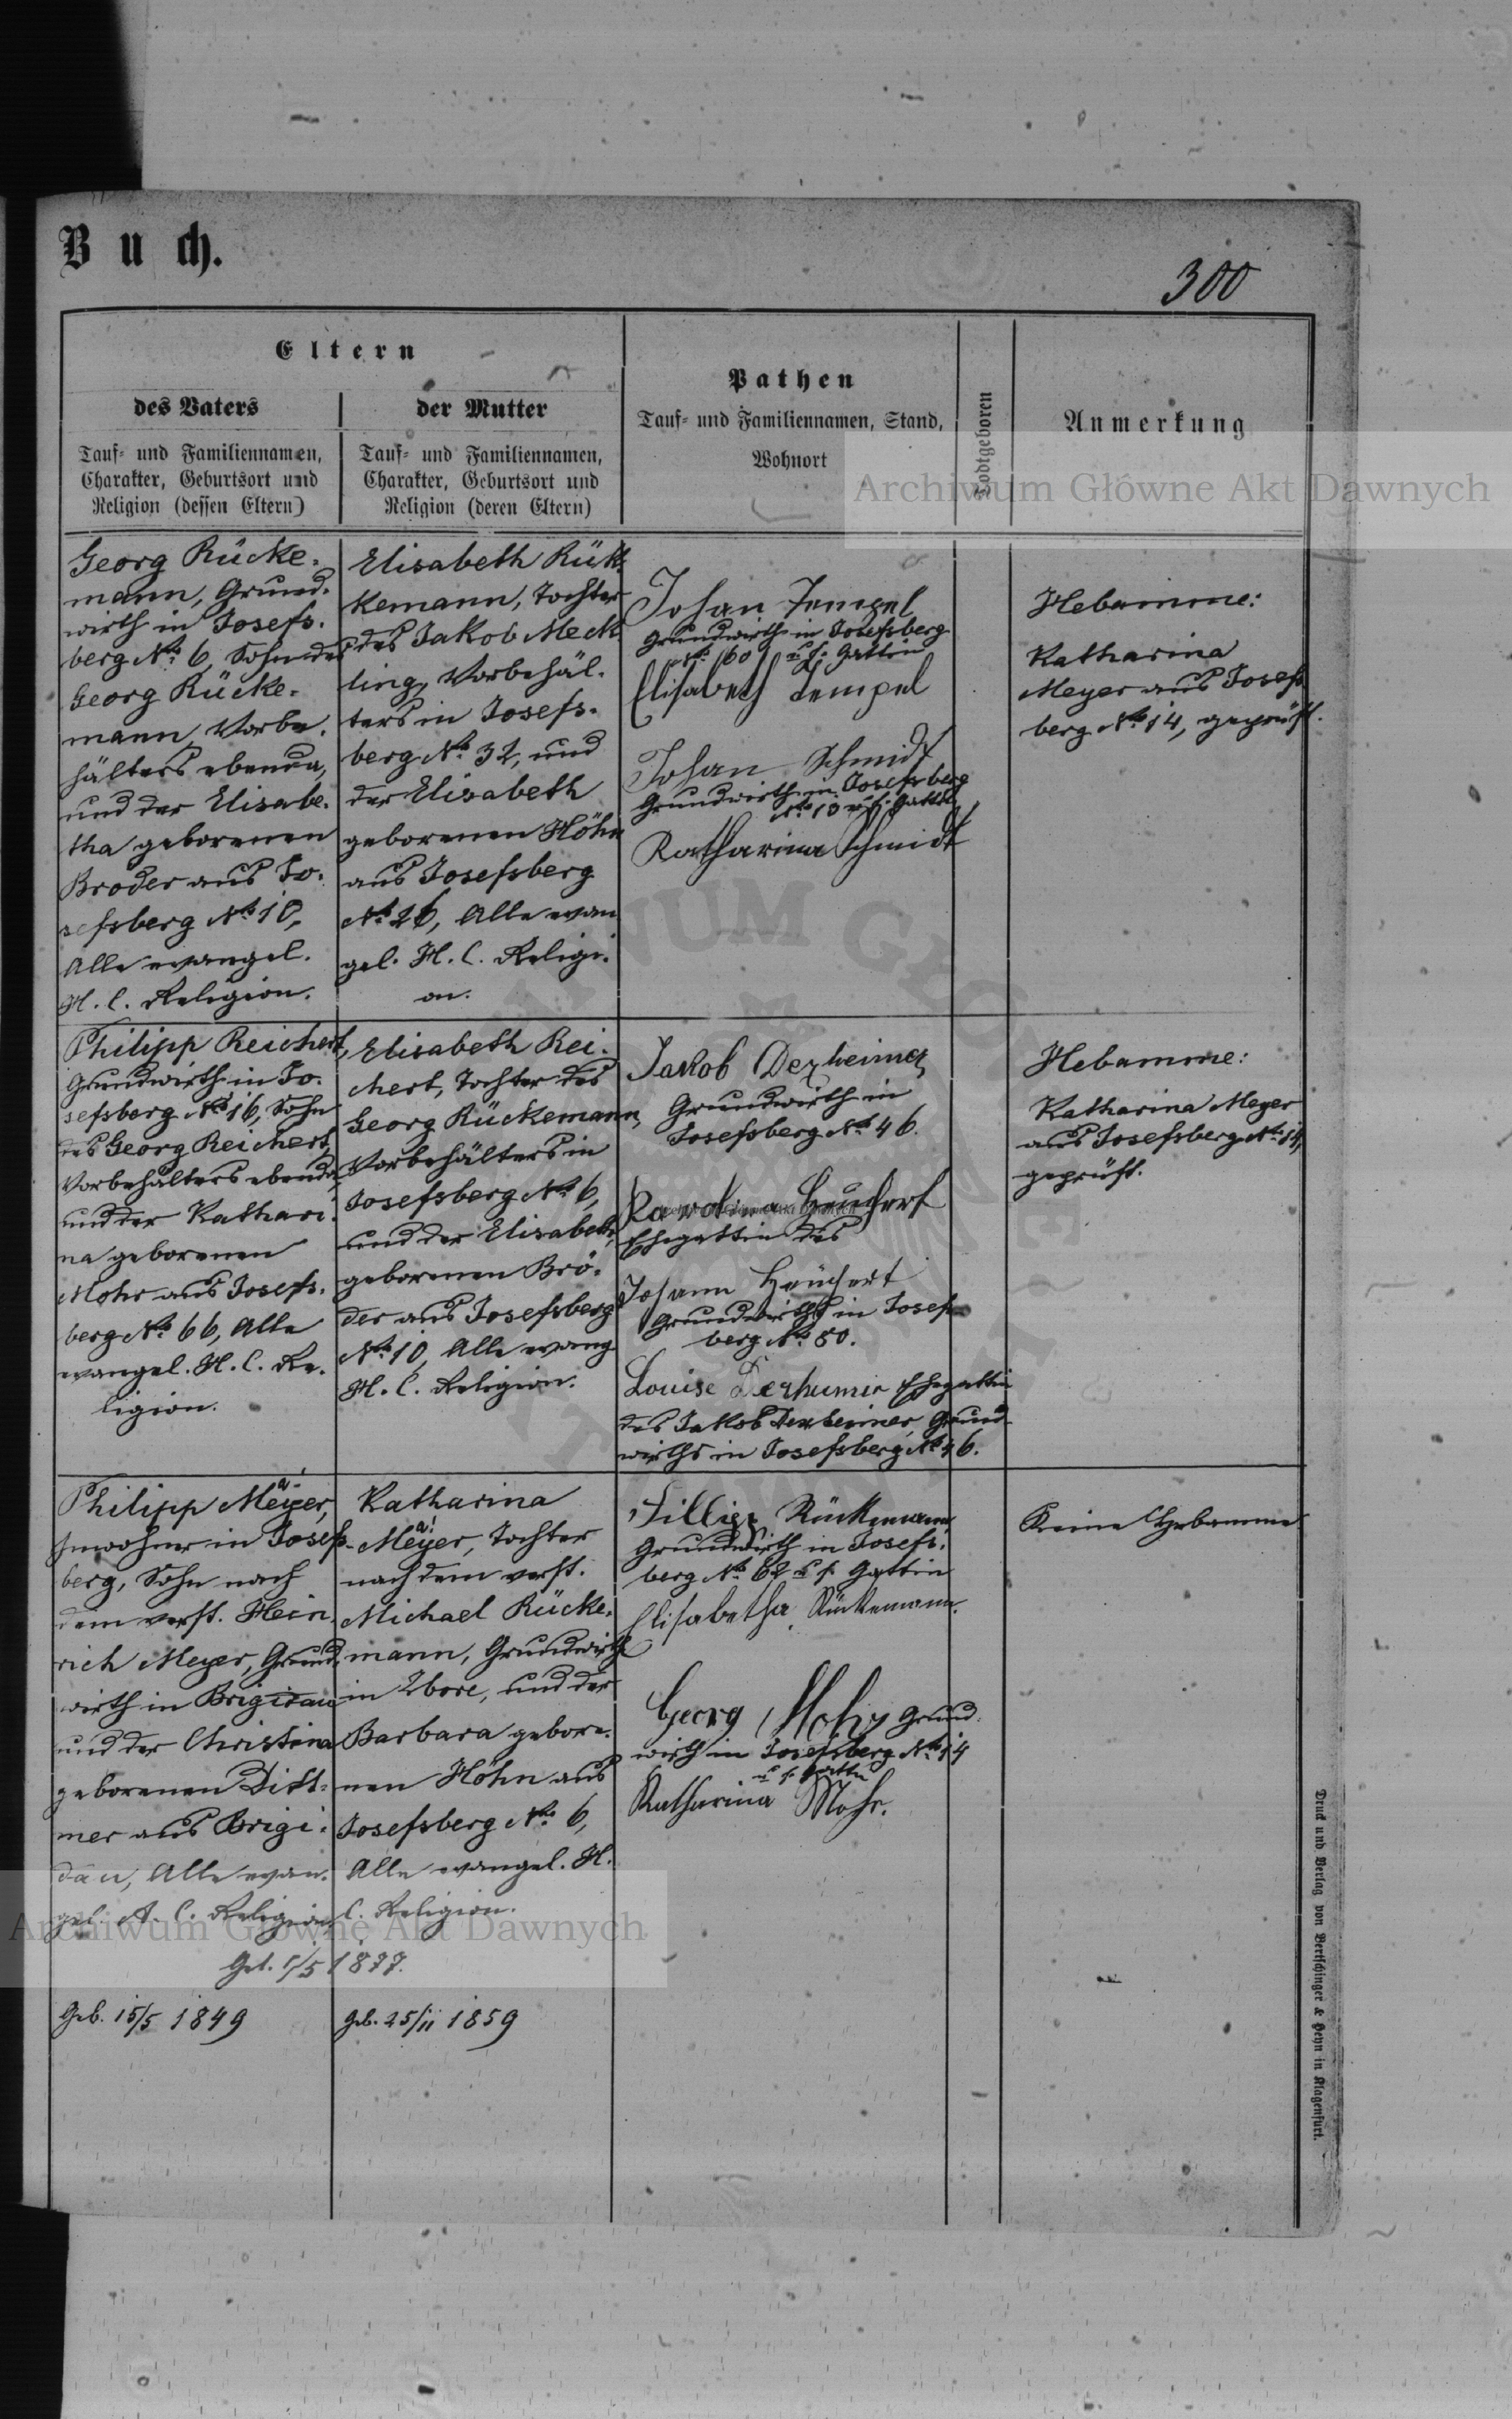 Buch.
300
Eltern
des Vaters
Tauf- und Familiennamen,
Charakter, Geburtsort und
Religion (dessen Eltern)
der Mutter
Tauf- und Familiennamen,
Charakter, Geburtsort und
Religion (deren Eltern)
Pathen
Tauf- und Familiennamen, Stand,
Wohnort
Todtgeboren
Anmerkung
Archiwum Główne Akt Dawnych
Georg Rücke-
mann, Grund-
wirth in Josefs-
berg No. 6, Sohn des
Georg Rücke-
mann, Vorbe-
hälters ebenda,
und der Elisabe-
tha geborenen
Broder aus Jo-
sefsberg No. 10,
Alle evangel.
H. C. Religion.
Elisabeth Rük-
kemann, Tochter
des Jakob Meck
ling, Vorbehäl-
ters in Josefs-
berg No. 32, und
der Elisabeth
geborenen Höhn
aus Josefsberg
No. 26, Alle evan
gel. H. C. Religi-
on.
Johan Tempel
Grundwirth in Josefsberg
No. 60 u. s. Gattin
Elisabeth Tempel
Johan Schmidt
Grundwirth in Josefsberg
No. 13 u. s. Gattin
Katharina Schmidt
Hebamme:
Katharina
Meyer aus Josefs
berg No. 14, geprüft.
Philipp Reichert,
Grundwirth in Jo-
sefsberg No. 16, Sohn
des Georg Reichert,
Vorbehälters ebenda,
und der Kathari-
na geborenen
Mohr aus Josefs-
berg No. 66, Alle
evangel. H. C. Re-
ligion.
Elisabeth Rei-
chert, Tochter des
Georg Rückemann,
Vorbehälters in
Josefsberg No. 6,
und der Elisabeth,
geborenen Brö-
der aus Josefsberg
No. 10, Alle evang
H. C. Religion.
Jakob Dexheimer,
Grundwirth in
Josefsberg No. 46.
Karolina Heuchert
Ehegattin des
Johann Heuchert
Grundwirths in Josefs
berg No. 80.
Louise Dexheimer Ehegattin
des Jakob Dexheimer, Grund-
wirths in Josefsberg No. 46.
Hebamme:
Katharina Meyer
aus Josefsberg No. 14,
geprüft.
Philipp Meyer,
Inwohner in Josefs-
berg, Sohn nach
dem verst. Hein-
rich Meyer, Grund-
wirth in Brigidau
und der Christina
geborenen Ditt-
mer aus Brigi-
dau, Alle evan-
gel. A. C. Religion,
Katharina
Meyer, Tochter
nach dem verst.
Michael Rücke-
mann, Grundwirth
in Ubore, und der
Barbara gebore-
nen Höhn aus
Josefsberg No. 6,
Alle evangel. H.
C. Religion.
Fillip Rückemann,
Grundwirth in Josefs-
berg No. 62 u. s. Gattin
Elisabetha Rückemann.
Georg Mohr Grund-
wirth in Josefsberg No. 14
u. s. Gattin
Katharina Mohr.
Keine Hebamme.
Archiwum Główne Akt Dawnych
1877.
Geb. 15/5 1849
geb. 25/11 1859
Druck und Verlag von Bertschinger & Heyn in Klagenfurt.